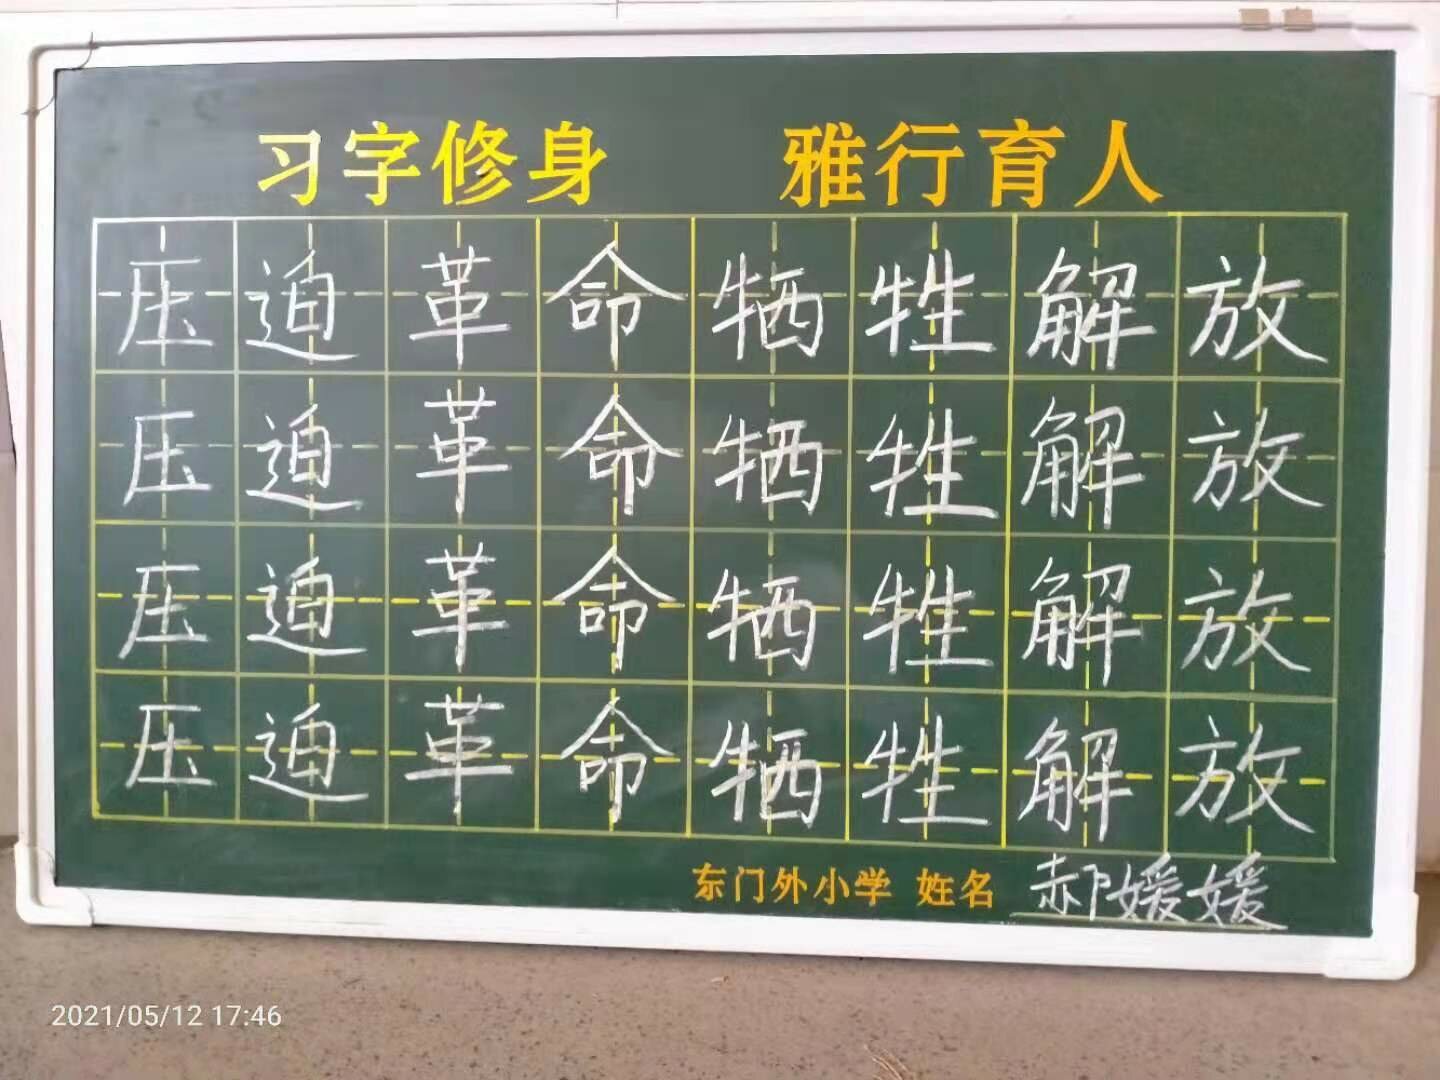 习字修身 雅行育人
压迫革命牺牲解放
压迫革命牺牲解放
压迫革命牺牲解放
压迫革命牺牲解放
东门外小学 姓名 郝媛媛
2021/05/12 17:46